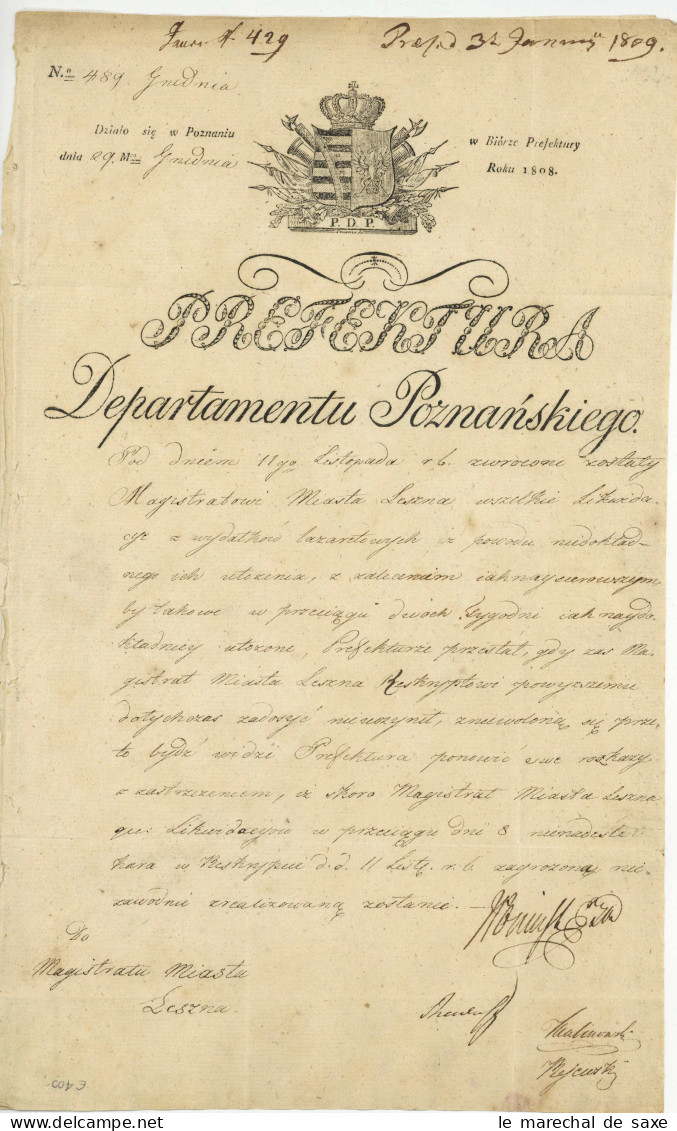 429 3 1809.
N.o 489 Grudnia
Działo się w Poznaniu
w Biórze Prefektury
dnia 29. M Grudnia
Roku 1808.
P. D. P.
PREFEKTURA
Departamentu Poznańskiego.
Pod dniem 11go Listopada r. b. zwrócone zostały
Magistratowi Miasta Leszna wszelkie Likwida-
cye z wydatków lazaretowych z powodu niedokład-
nego ich ułożenia, z zaleceniem
by takowe w przeciągu dwóch Tygodni iak naydo-
kładniey ułożone, Prefekturze przesłał, gdy zas Ma-
gistrat Miasta Leszna Reskryptowi powyzszemu
dotychczas zadosyć nieuczynił, zniewoloną się prze-
to bydź widzi Prefektura ponowić swe rozkazy
z zastrzezeniem, iz skoro Magistrat Miasta Leszna
Likwidacyów w przeciągu dni 8 nienadeśle
kara w Reskrypcie d. d. 11 List. r. b. zagrozoną nie-
zawodnie zrealizowaną zostanie. —
Do
Magistratu Miasta
Leszna.
€ 400-
le marechal de saxe
www.delcampe.net
le marechal de saxe